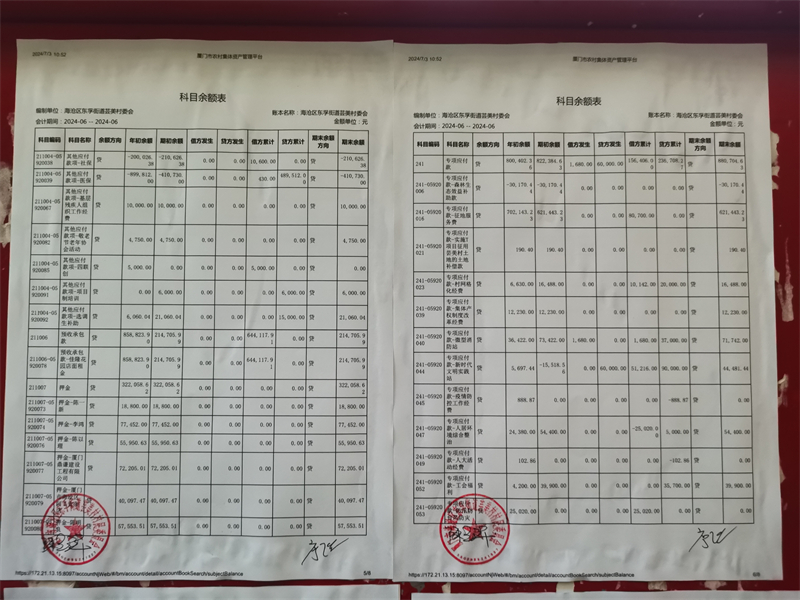 2024/7/3 10:52
厦门市农村集体资产管理平台
科目余额表
编制单位：海沧区东孚街道芸美村委会
账本名称：海沧区东孚街道芸美村委会
会计期间：2024-06 — 2024-06
金额单位：元
科目编码 科目名称 余额方向 年初余额 期初余额 借方发生 贷方发生 借方累计 贷方累计 期末余额方向 期末余额
211004-05920038 其他应付款项-社保 贷 -200,026.38 -210,626.38 0.00 0.00 10,600.00 0.00 贷 -210,626.38
211004-05920039 其他应付款项-医保 贷 0.00 0.00 430.00 489,512.00 贷 -410,730.00
211004-05920067 其他应付款项-基层残疾人组织工作经费 贷 10,000.00 10,000.00 0.00 0.00 0.00 0.00 贷 10,000.00
211004-05920082 其他应付款项-敬老节老年协会活动 贷 4,750.00 4,750.00 0.00 0.00 0.00 0.00 贷 4,750.00
其他应付款项-四联创 贷 5,000.00 0.00 0.00 0.00 5,000.00 0.00 贷 0.00
211004-05920091 其他应付款项-项目制培训 贷 0.00 6,000.00 0.00 0.00 0.00 6,000.00 贷 6,000.00
211004-05920092 其他应付款项-选调生补助 贷 6,060.04 21,060.04 0.00 0.00 0.00 15,000.00 贷 21,060.04
211006 预收承包款 贷 858,823.90 214,705.99 0.00 0.00 644,117.91 0.00 贷 214,705.99
211006-05920078 预收承包款-佳隆花园店面租金 贷 858,823.90 214,705.99 0.00 0.00 644,117.91 0.00 贷 214,705.99
211007 押金 贷 322,058.62 322,058.62 0.00 0.00 0.00 0.00 贷 322,058.62
211007-05920073 押金-陈一 贷 18,800.00 18,800.00 0.00 0.00 0.00 0.00 贷 18,800.00
211007-05920074 押金-李鸿 贷 77,452.00 77,452.00 0.00 0.00 0.00 0.00 贷 77,452.00
211007-05920076 押金-陈以 贷 55,950.63 55,950.63 0.00 0.00 0.00 0.00 贷 55,950.63
211007-05920077 押金-厦门鼎谦建设工程有限公司 贷 72,205.01 72,205.01 0.00 0.00 0.00 0.00 贷 72,205.01
211007-05920079 押金-厦门 贷 40,097.47 40,097.47 0.00 0.00 0.00 0.00 贷 40,097.47
押金 贷 57,553.51 57,553.51 0.00 0.00 0.00 0.00 贷 57,553.51
https://172.21.13.15:8097/accountNjWeb/#/bm/account/detail/accountBookSearch/subjectBalance
5/6
2024/7/3 10:52
厦门市农村集体资产管理平台
科目余额表
编制单位：海沧区东孚街道芸美村委会
账本名称：海沧区东孚街道芸美村委会
会计期间：2024-06 — 2024-06
金额单位：元
科目编码 科目名称 余额方向 年初余额 期初余额 借方发生 贷方发生 借方累计 贷方累计 期末余额方向 期末余额
241 专项应付款 贷 1,680.00 60,000.00 贷
241-05920006 专项应付款-森林生态效益补助款 贷 -30,170.44 -30,170.44 0.00 0.00 0.00 0.00 贷 -30,170.44
241-05920016 专项应付款-征地服务费 贷 702,143.23 621,443.23 0.00 0.00 80,700.00 0.00 贷 621,443.23
241-05920021 专项应付款-实施T项目征用芸美村土地的土地补偿款 贷 190.40 190.40 0.00 0.00 0.00 0.00 贷 190.40
241-05920023 专项应付款-村网格化经费 贷 6,630.00 16,488.00 0.00 0.00 10,142.00 20,000.00 贷 16,488.00
241-05920039 专项应付款-集体产权制度改革经费 贷 12,230.00 12,230.00 0.00 0.00 0.00 0.00 贷 12,230.00
241-05920040 专项应付款-微型消防站 贷 36,422.00 73,422.00 1,680.00 0.00 1,680.00 37,000.00 贷 71,742.00
241-05920044 专项应付款-新时代文明实践站 贷 5,697.44 -15,518.56 0.00 60,000.00 51,216.00 90,000.00 贷 44,481.44
241-05920045 专项应付款-疫情防控工作经费 贷 888.87 0.00 0.00 0.00 0.00 -888.87 贷 0.00
241-05920047 专项应付款-人居环境综合整治 贷 24,380.00 54,400.00 0.00 0.00 -25,020.00 5,000.00 贷 54,400.00
241-05920049 专项应付款-人大活动经费 贷 102.86 0.00 0.00 0.00 0.00 -102.86 贷 0.00
241-05920052 专项应付款-工会福利 贷 4,200.00 39,900.00 0.00 0.00 0.00 35,700.00 贷 39,900.00
241-05920053 贷 25,020.00 0.00 0.00 0.00 25,020.00 0.00 贷 0.00
https://172.21.13.15:8097/accountNjWeb/#/bm/account/detail/accountBookSearch/subjectBalance
6/6